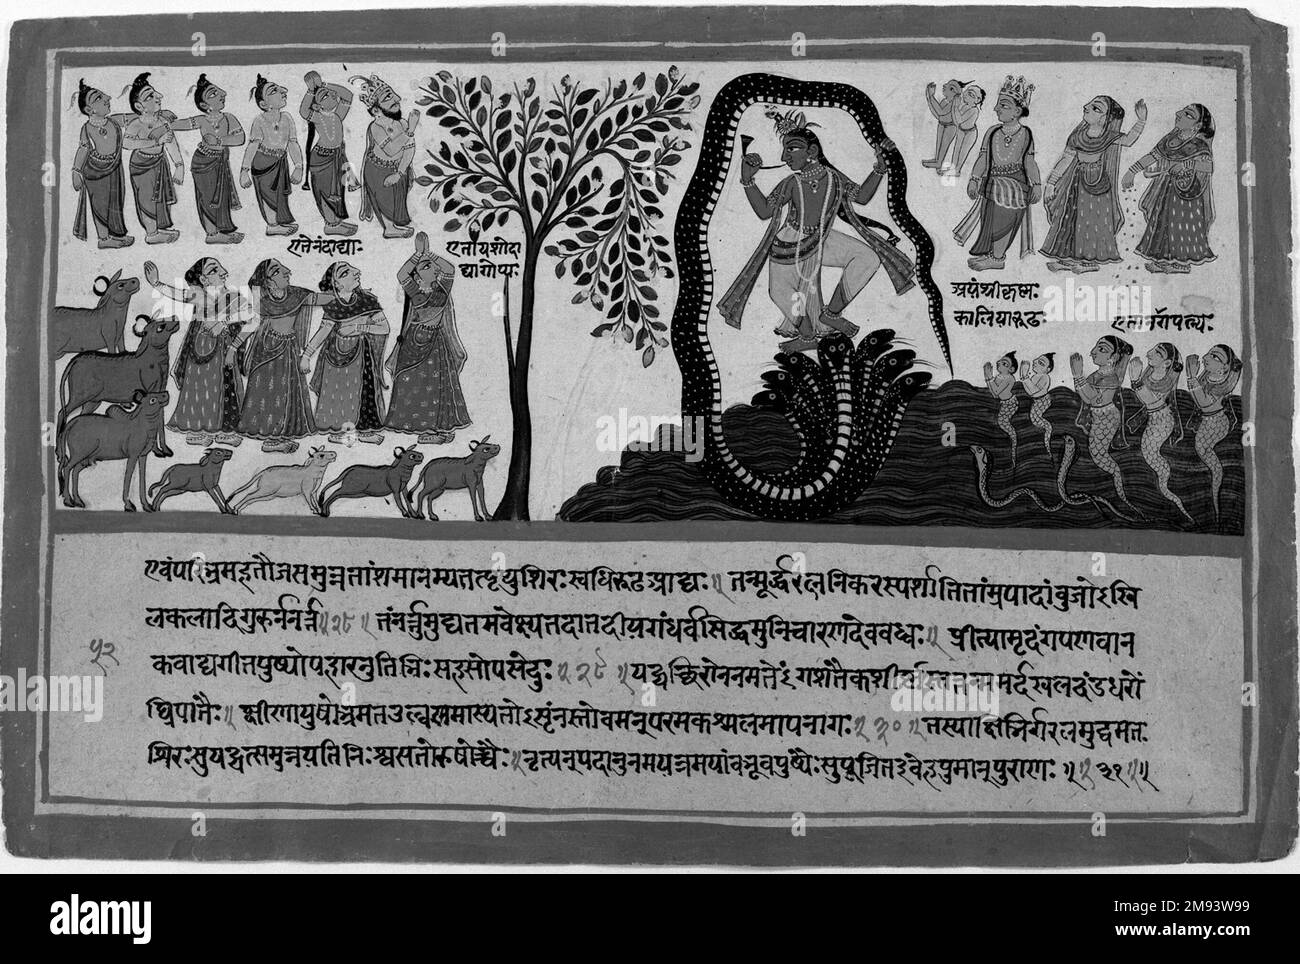 एते नंदाद्याः
एता यशोदा
द्या गोप्यः
अयं श्रीकृष्णः
कालियारूढः
एतानागपत्न्यः
५२
एवं परिभ्रमहतौजसमुन्नतांशमानम्यतत्पृथुशिरःस्वधिरूढआद्यः॥ तन्मूर्द्धरत्ननिकरस्पर्शातितांम्रपादांबुजोऽखि
लकलादिगुरुर्ननर्त्त॥२८॥ तंनर्त्तुमुद्यतमवेक्ष्यतदातदीयगंधर्वसिद्धमुनिचारणदेववध्वः॥ प्रीत्यामृदंगपणवान
कवाद्यगीतपुष्पोपहारनुतिभिःसहसोपसेदुः॥२९॥ यद्यच्छिरोननमतेऽंगशतैकशीर्ष्णस्तत्तन्ममर्दखलदंडधरों
घ्रिपातैः॥ क्षीणायुषोभ्रमतउल्बणमास्यतोऽसृंनस्तोवमन्परमकश्मलमापनागः॥३०॥ तस्याक्षिभिर्गरलमुद्वमतः
शिरःसुयद्यत्समुन्नमतिनिःश्वसतोरुषोच्चैः॥ नृत्यन्पदानुनमयन्दमयांबभूवपुष्पैःसुपूजितइवेहपुमान्पुराणः॥३१॥
alamy
Image ID: 2M93W99
www.alamy.com